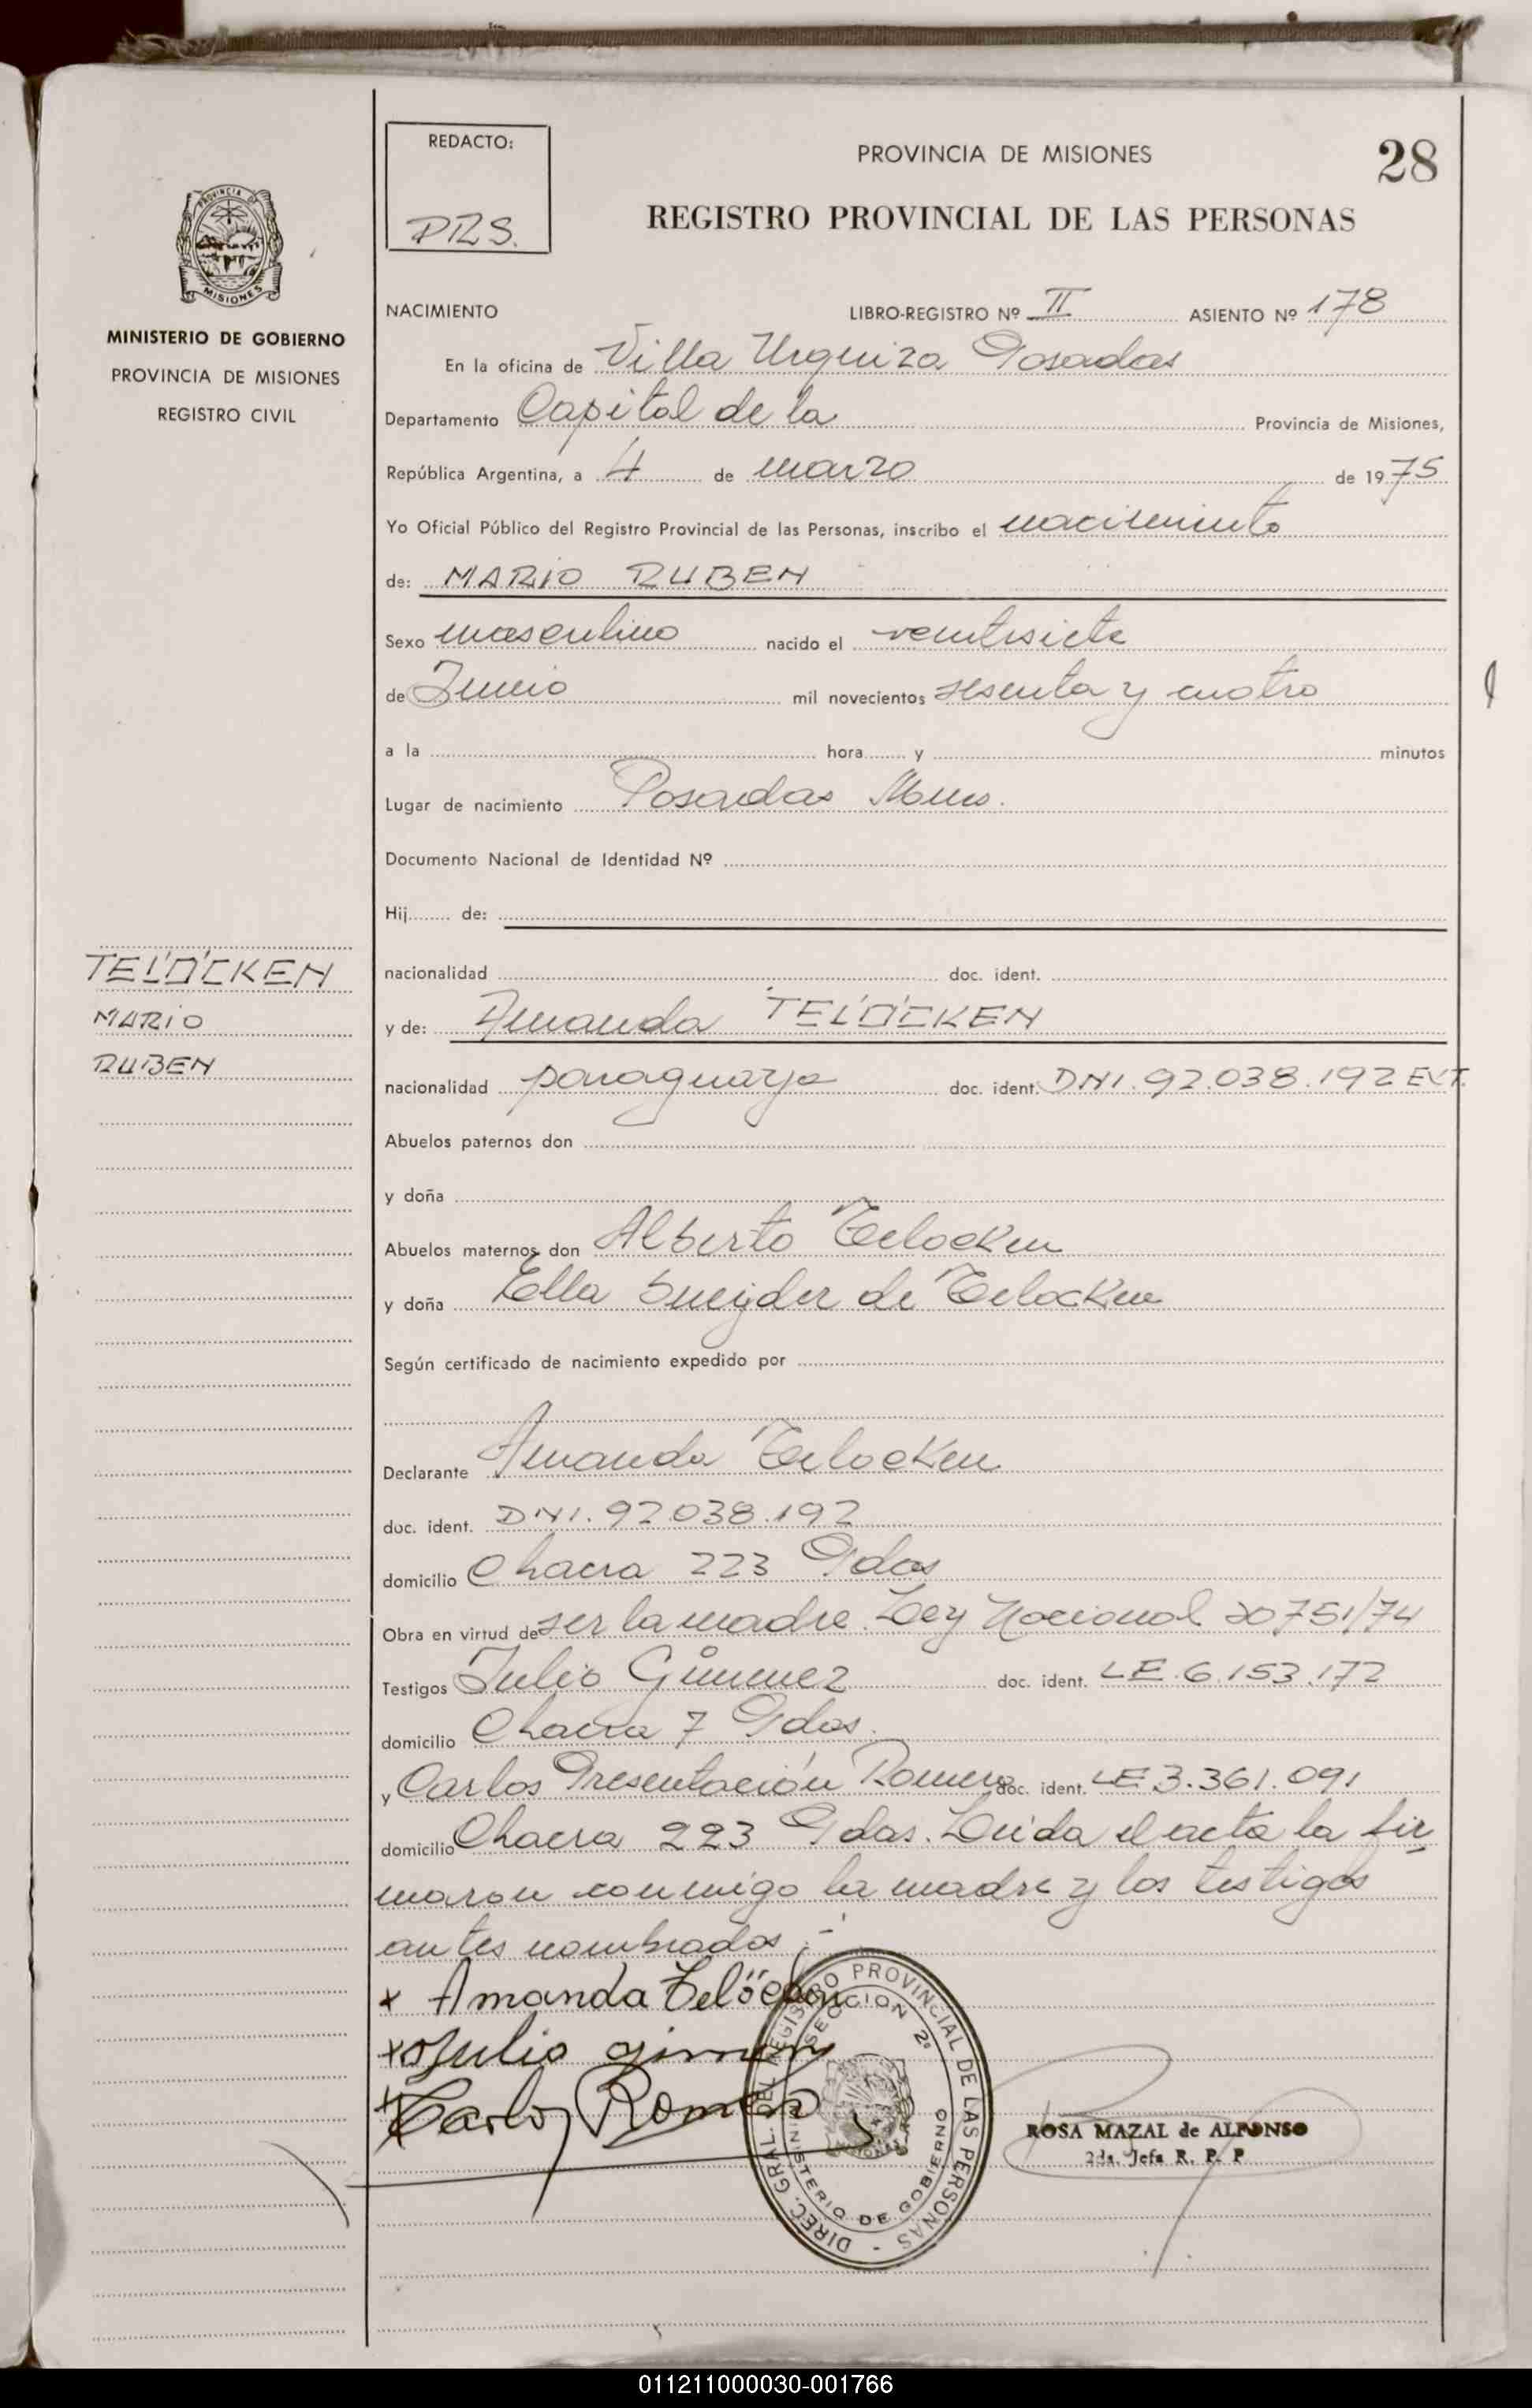 REDACTO:
PROVINCIA DE MISIONES
28
REGISTRO PROVINCIAL DE LAS PERSONAS
PROVINCIA DE
MISIONES
MINISTERIO DE GOBIERNO
PROVINCIA DE MISIONES
REGISTRO CIVIL
NACIMIENTO LIBRO-REGISTRO Nº II ASIENTO Nº 178
En la oficina de Villa Urquiza Posadas
Departamento Capital de la Provincia de Misiones,
República Argentina, a 4 de marzo de 1975
Yo Oficial Público del Registro Provincial de las Personas, inscribo el nacimiento
de: MARIO RUBEN
Sexo masculino nacido el veintisiete
de Junio mil novecientos sesenta y cuatro
a la hora y minutos
Lugar de nacimiento Posadas Mnes.
Documento Nacional de Identidad Nº
Hij de:
TELÖCKEN
MARIO
RUBEN
nacionalidad doc. ident.
y de: Amanda TELÖCKEN
nacionalidad paraguaya doc. ident. DNI. 92.038.192 EXT.
Abuelos paternos don
y doña
Abuelos maternos don Alberto Telocken
y doña Ella Sneijder de Telocken
Según certificado de nacimiento expedido por
Declarante Amanda Telocken
doc. ident. DNI. 92.038.192
domicilio Chacra 223 Pdas
Obra en virtud de ser la madre. Ley Nacional 20751/74
Testigos Julio Gimenez doc. ident. LE. 6.153.172
domicilio Chacra 7 Pdas.
y Carlos Presentación Romero doc. ident. LE 3.361.091
domicilio Chacra 223 Pdas. Leida el acta la fir
maron conmigo la madre y los testigos
antes nombrados.-
x Amanda Telöcken
x Julio gimenez
x Carlos Romero
DIREC. GRAL. DEL REGISTRO PROVINCIAL DE LAS PERSONAS -
SECCION 2ª
MINISTERIO DE GOBIERNO
ROSA MAZAL de ALFONSO
2da. Jefa R. P. P.
011211000030-001766